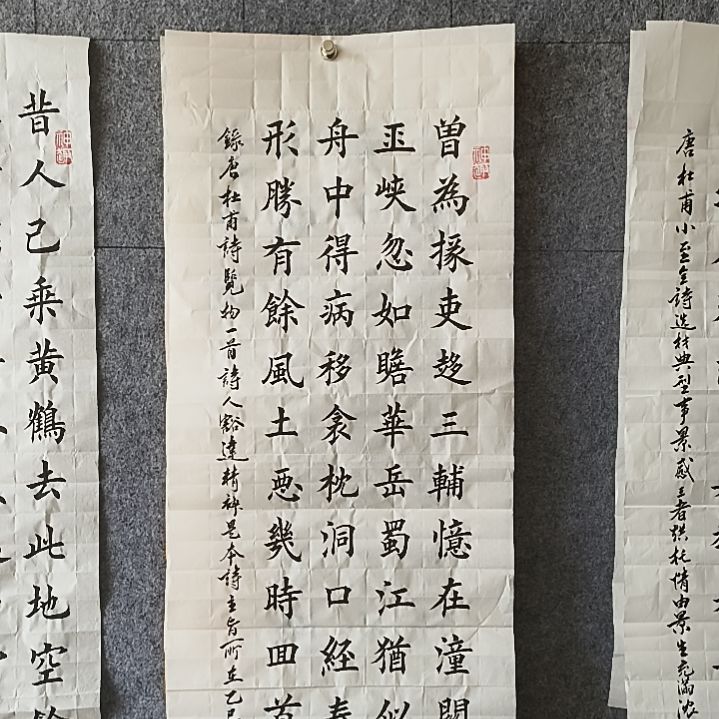 唐杜甫小至全詩選材典型事景感王者烘托情由景生充滿濃
曾為掾吏趍三輔憶在潼關
巫峽忽如瞻華岳蜀江猶似
舟中得病移衾枕洞口經春
形勝有餘風土惡幾時囬首
錄唐杜甫詩覽物一首詩人豁達精神是本詩主旨所在乙巳
昔人已乘黄鶴去此地空餘